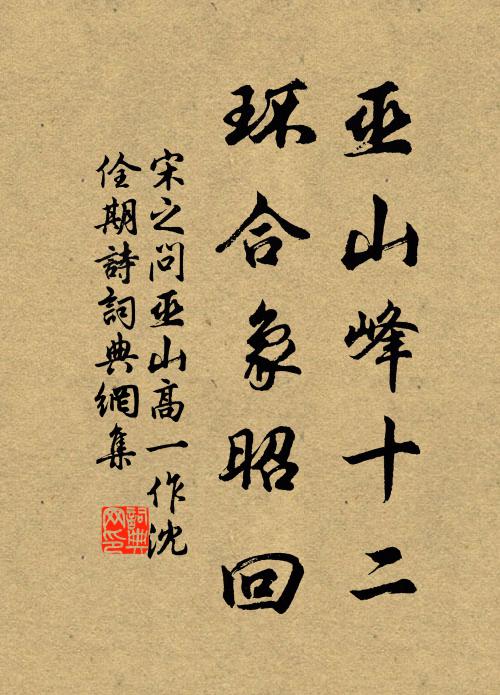 巫山峰十二
环合象昭回
宋之問巫山高一作沈
佺期詩詞典網集
詞典
网印